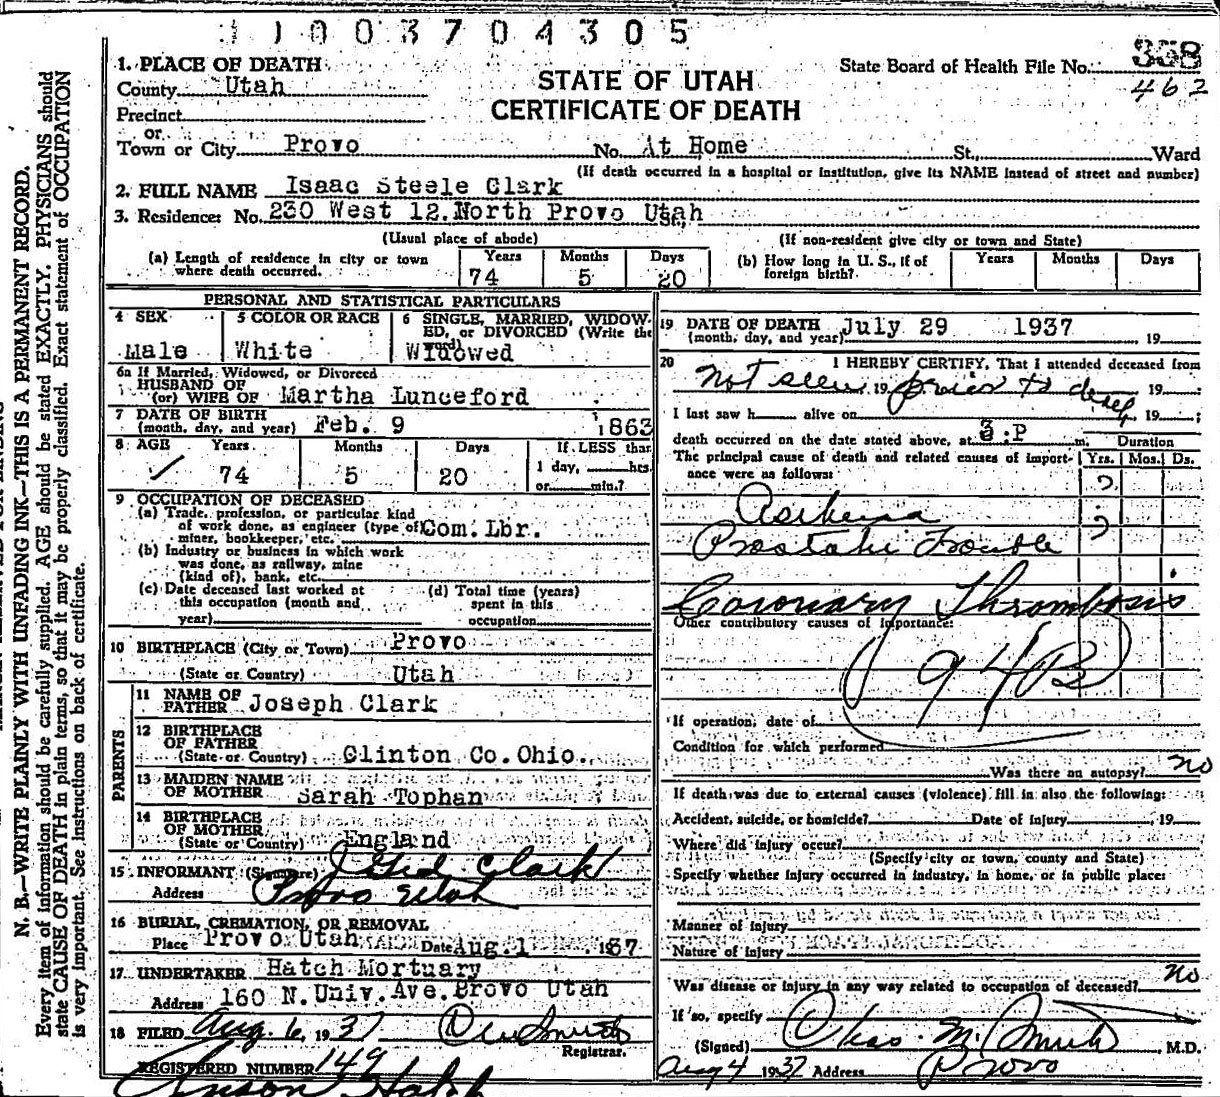 1 1 0 0 3 7 0 4 3 0 5
State Board of Health File No. 358
462
STATE OF UTAH
CERTIFICATE OF DEATH
1. PLACE OF DEATH
County Utah
Precinct
or
Town or City Provo No. At Home St., Ward
(If death occurred in a hospital or institution, give its NAME instead of street and number)
2. FULL NAME Isaac Steele Clark
3. Residence: No. 230 West 12. North Provo Utah
(Usual place of abode) (If non-resident give city or town and State)
(a) Length of residence in city or town where death occurred. Years 74 Months 5 Days 20
(b) How long in U. S., if of foreign birth? Years Months Days
PERSONAL AND STATISTICAL PARTICULARS
4 SEX Male
5 COLOR OR RACE White
6 SINGLE, MARRIED, WIDOWED, or DIVORCED (Write the word) Widowed
6a If Married, Widowed, or Divorced
HUSBAND OF
(or) WIFE OF Martha Lunceford
7 DATE OF BIRTH
(month, day, and year) Feb. 9 1863
8 AGE Years 74 Months 5 Days 20 If LESS than
1 day, hrs.
or min.?
9 OCCUPATION OF DECEASED
(a) Trade, profession, or particular kind
of work done, as engineer (type of) Com. Lbr.
miner, bookkeeper, etc.
(b) Industry or business in which work
was done, as railway, mine
(kind of), bank, etc.
(c) Date deceased last worked at
this occupation (month and
year)
(d) Total time (years)
spent in this
occupation
10 BIRTHPLACE (City or Town) Provo
(State or Country) Utah
PARENTS
11 NAME OF
FATHER Joseph Clark
12 BIRTHPLACE
OF FATHER
(State or Country) Clinton Co. Ohio.
13 MAIDEN NAME
OF MOTHER Sarah Tophan
14 BIRTHPLACE
OF MOTHER
(State or Country) England
15 INFORMANT (Signature) J Ged Clark
Address Provo Utah
16 BURIAL, CREMATION, OR REMOVAL
Place Provo Utah Date Aug. 1 1937
17 UNDERTAKER Hatch Mortuary
Address 160 N. Univ. Ave. Provo Utah
18 FILED Aug. 6, 1937
Registrar.
REGISTERED NUMBER 149
Anson Hatch
19 DATE OF DEATH July 29 1937
(month, day, and year) 19
20 I HEREBY CERTIFY, That I attended deceased from
not seen 19 prior to death, 19 ;
I last saw h alive on , 19 ;
death occurred on the date stated above, at 3 :P m. Duration
The principal cause of death and related causes of importance were as follows: Yrs. Mos. Ds.
?
Asthma
Prostate Trouble ?
Coronary Thrombosis
Other contributory causes of importance:
94B
If operation, date of
Condition for which performed
Was there an autopsy? no
If death was due to external causes (violence) fill in also the following:
Accident, suicide, or homicide? Date of injury , 19
Where did injury occur?
(Specify city or town, county and State)
Specify whether injury occurred in industry, in home, or in public place:
Manner of injury
Nature of injury
Was disease or injury in any way related to occupation of deceased? no
If so, specify
(Signed) Chas. M. Smith , M.D.
Aug 4 1937 Address Provo
N. B.—WRITE PLAINLY WITH UNFADING INK—THIS IS A PERMANENT RECORD.
Every item of information should be carefully supplied. AGE should be stated EXACTLY. PHYSICIANS should
state CAUSE OF DEATH in plain terms, so that it may be properly classified. Exact statement of OCCUPATION
is very important. See instructions on back of certificate.